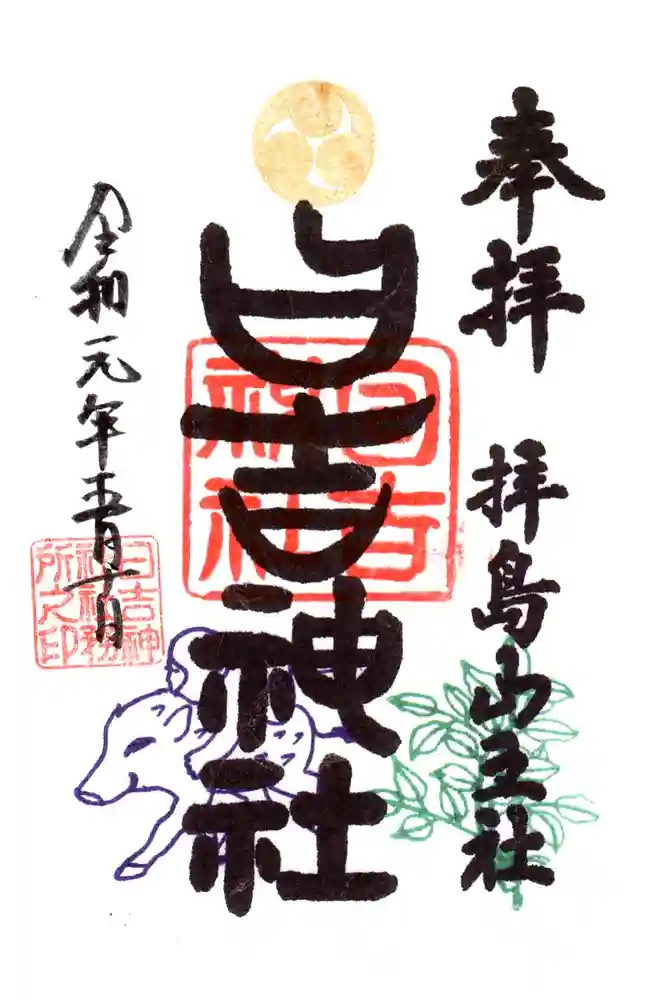 奉拝
拝島山王社
日吉神社
日吉
神社
令和元年五月十日
日吉神
社社務
所之印